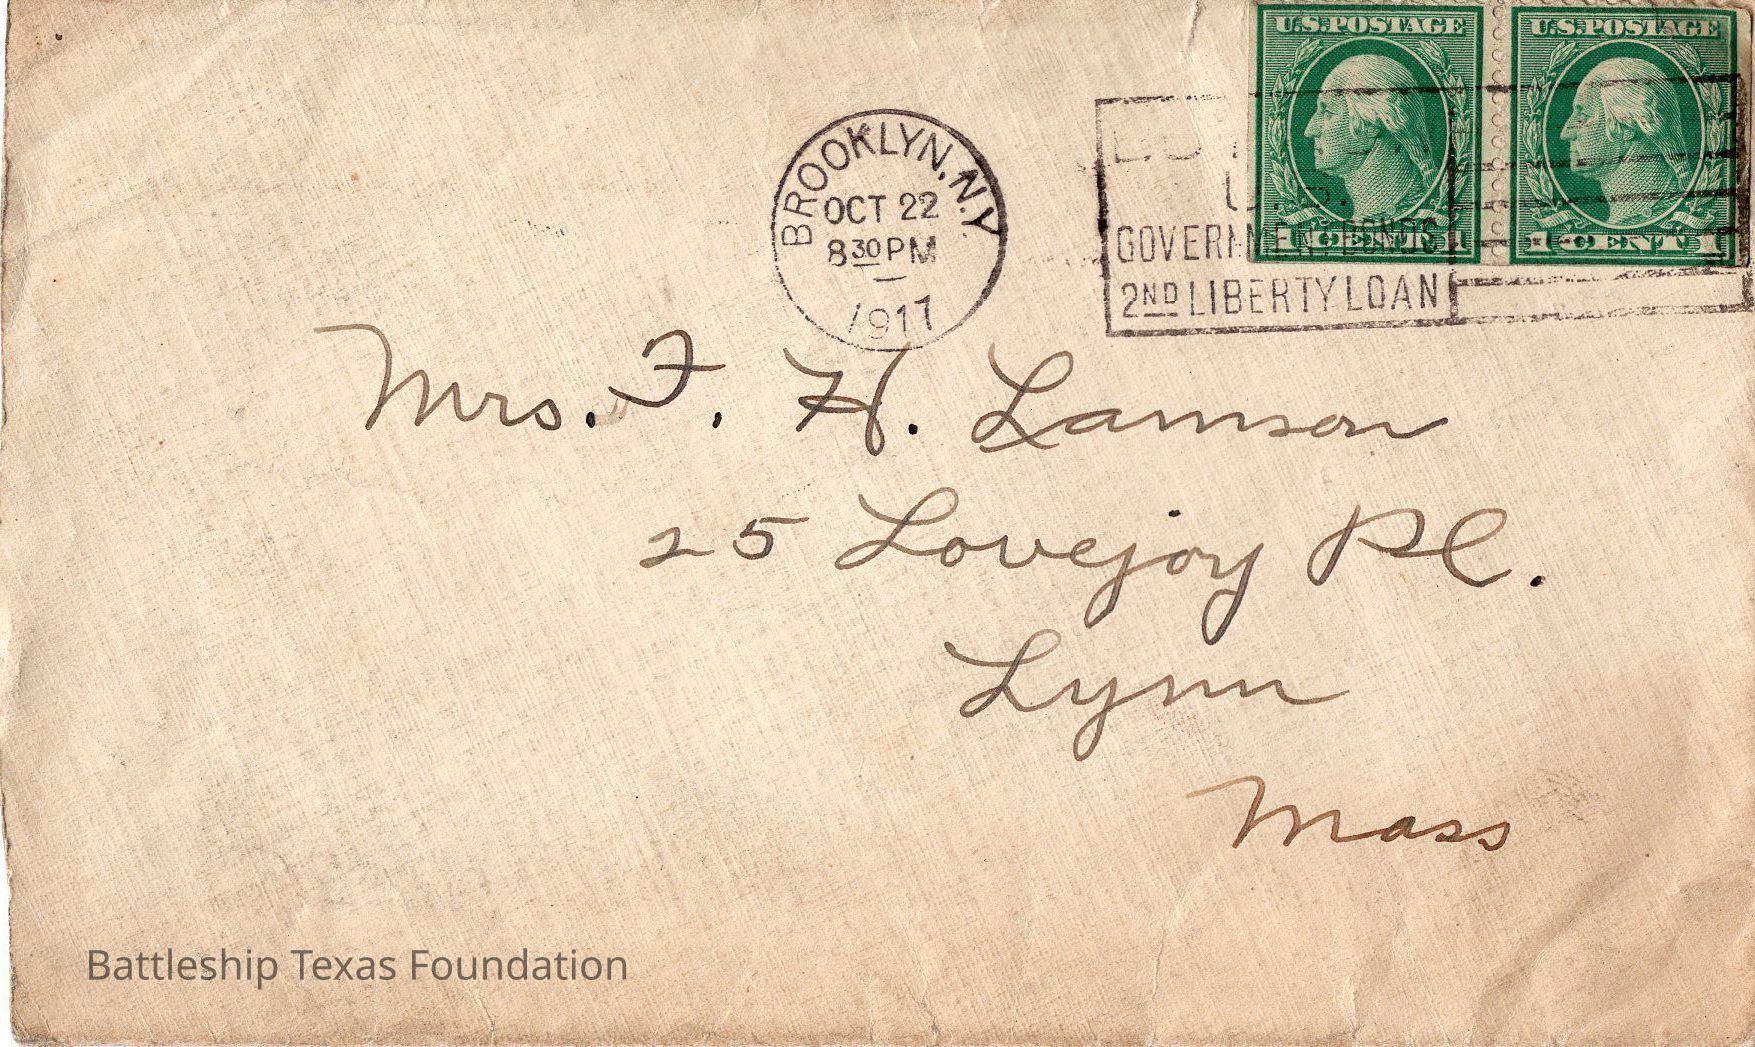 U.S.POSTAGE U.S.POSTAGE
1 CENT 1 1 CENT 1
BROOKLYN, N.Y.
OCT 22
8 30 PM
1917
GOVERNMENT BONDS
2ND LIBERTY LOAN
Mrs. F. H. Lamson
25 Lovejoy Pl.
Lynn
Mass
Battleship Texas Foundation